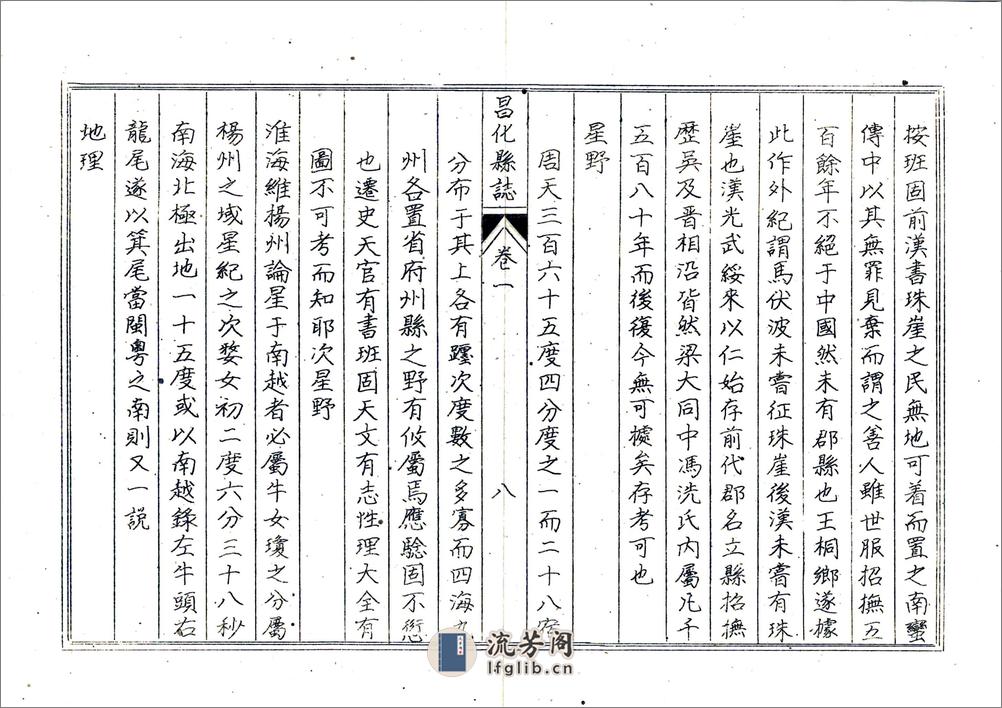 按班固前漢書珠崖之民無地可着而置之南蠻
傳中以其無罪見棄而謂之善人雖世服招撫五
百餘年不絕于中國然未有郡縣也王桐鄉遂據
此作外紀謂馬伏波未嘗征珠崖後漢未嘗有珠
崖也漢光武綏來以仁始存前代郡名立縣招撫
歷吳及晋相沿皆然梁大同中馮洗氏內屬凡千
五百八十年而後復今無可據矣存考可也
星野
周天三百六十五度四分度之一而二十八宿
昌化縣誌 卷一 八
分布于其上各有躔次度數之多寡而四海九
州各置省府州縣之野有攸屬焉應騐固不愆
也遷史天官有書班固天文有志性理大全有
圖不可考而知耶次星野
淮海維揚州論星于南越者必屬牛女瓊之分屬
楊州之域星紀之次婺女初二度六分三十八秒
南海北極出地一十五度或以南越錄左牛頭右
龍尾遂以箕尾當閩粵之南則又一說
地理
流芳阁
lfglib.cn